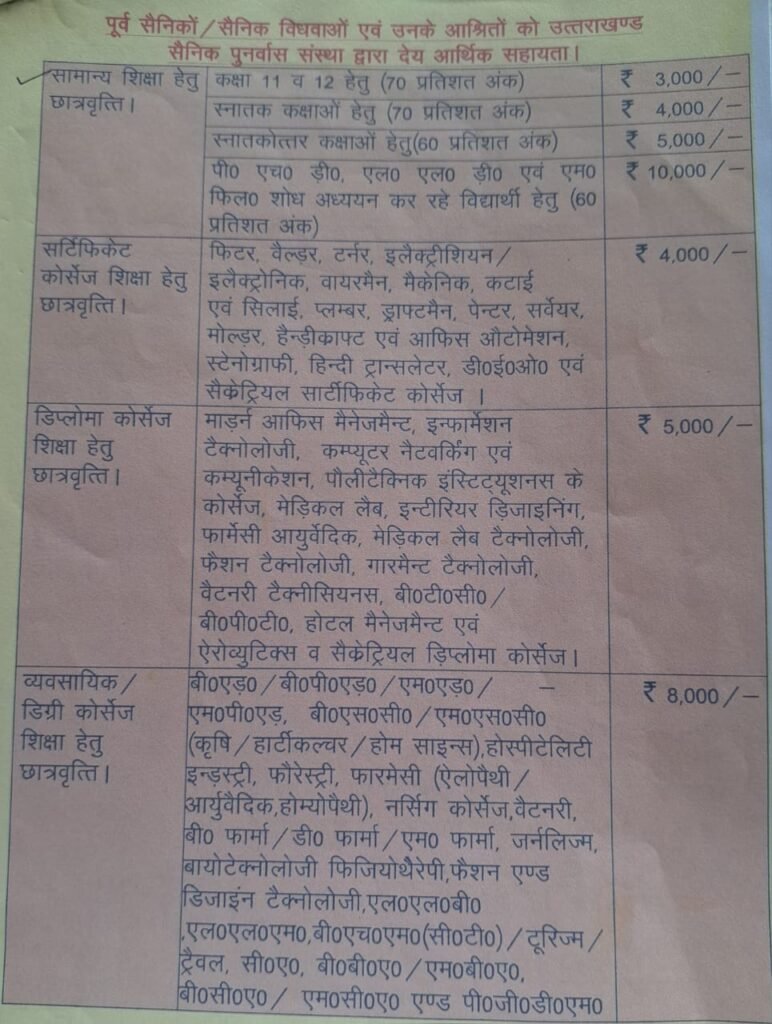 पूर्व सैनिकों/सैनिक विधवाओं एवं उनके आश्रितों को उत्तराखण्ड
सैनिक पुनर्वास संस्था द्वारा देय आर्थिक सहायता।
सामान्य शिक्षा हेतु
छात्रवृत्ति।
कक्षा 11 व 12 हेतु (70 प्रतिशत अंक)
₹ 3,000/–
स्नातक कक्षाओं हेतु (70 प्रतिशत अंक)
₹ 4,000/–
स्नातकोत्तर कक्षाओं हेतु(60 प्रतिशत अंक)
₹ 5,000/–
पी0 एच0 ड़ी0, एल0 एल0 ड़ी0 एवं एम0
फिल0 शोध अध्ययन कर रहे विद्यार्थी हेतु (60
प्रतिशत अंक)
₹ 10,000/–
सर्टिफिकेट
कोर्सेज शिक्षा हेतु
छात्रवृत्ति।
फिटर, वैल्ड़र, टर्नर, इलैक्ट्रीशियन/
इलैक्ट्रोनिक, वायरमैन, मैकेनिक, कटाई
एवं सिलाई, प्लम्बर, ड्राफ्टमैन, पेन्टर, सर्वेयर,
मोल्ड़र, हैन्ड़ीक्राफ्ट एवं आफिस औटोमेशन,
स्टेनोग्राफी, हिन्दी ट्रान्सलेटर, डी0ई0ओ0 एवं
सैक्रेट्रियल सार्टीफिकेट कोर्सेज ।
₹ 4,000/–
डिप्लोमा कोर्सेज
शिक्षा हेतु
छात्रवृत्ति।
मार्ड़न आफिस मैनेजमैन्ट, इन्फार्मेशन
टैक्नोलोजी, कम्प्यूटर नैटवर्किंग एवं
कम्यूनीकेशन, पौलीटैक्निक इंस्टिट्यूशनस के
कोर्सेज, मेड़िकल लैब, इन्टीरियर ड़िजाइनिंग,
फार्मेसी आयुर्वेदिक, मेड़िकल लैब टैक्नोलोजी,
फैशन टैक्नोलोजी, गारमैन्ट टैक्नोलोजी,
वैटनरी टैक्नीसियनस, बी0टी0सी0/
बी0पी0टी0, होटल मैनेजमैन्ट एवं
ऐरोव्युटिक्स व सैक्रेट्रियल ड़िप्लोमा कोर्सेज।
₹ 5,000/–
व्यवसायिक/
डिग्री कोर्सेज
शिक्षा हेतु
छात्रवृत्ति।
बी0एड़0/बी0पी0एड़0/एम0एड़0/ –
एम0पी0एड़, बी0एस0सी0/एम0एस0सी0
(कृषि/हार्टीकल्चर/होम साइन्स),होस्पीटेलिटी
इन्ड़स्ट्री, फौरेस्ट्री, फारमेसी (ऐलोपैथी/
आर्युवैदिक,होम्योपैथी), नर्सिग कोर्सेज,वैटनरी,
बी0 फार्मा/डी0 फार्मा/एम0 फार्मा, जर्नलिज्म,
बायोटेक्नोलोजी फिजियोथैरेपी,फैशन एण्ड
डिजाइंन टैक्नोलोजी,एल0एल0बी0
,एल0एल0एम0,बी0एच0एम0(सी0टी0)/टूरिज्म/
ट्रैवल, सी0ए0, बी0बी0ए0/एम0बी0ए0,
बी0सी0ए0/ एम0सी0ए0 एण्ड पी0जी0डी0एम0
₹ 8,000/–